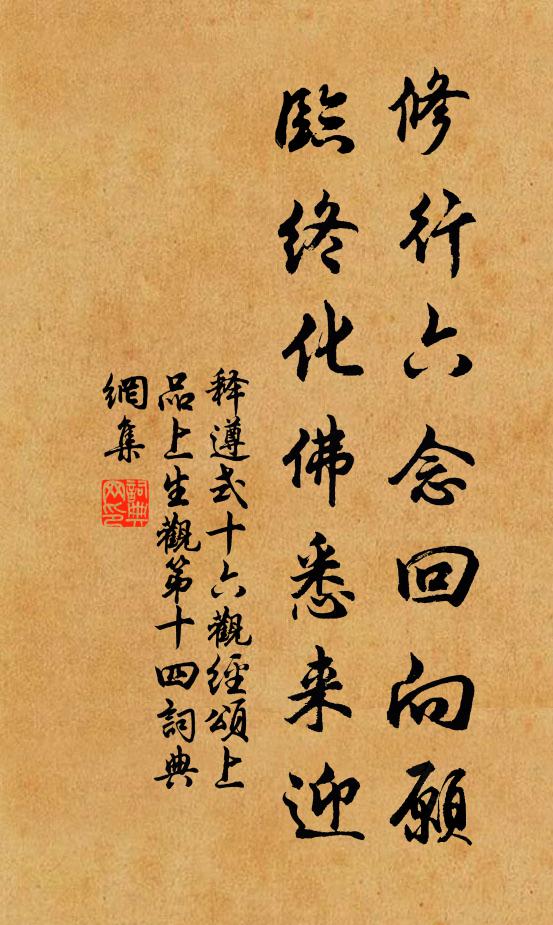 修行六念回向願
臨終化佛悉来迎
释遵式十六觀經頌上
品上生觀第十四詞典
網集
詞典
网印